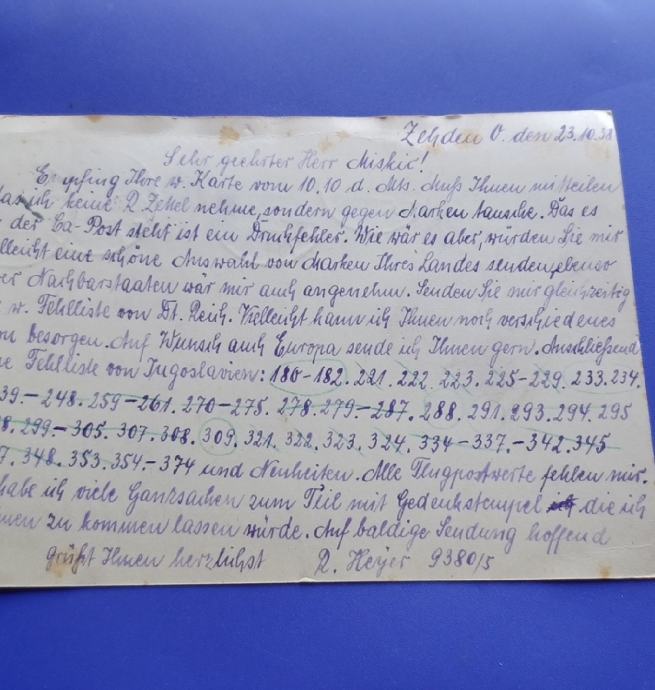 Zehden O. den 23.10.38
Sehr geehrter Herr Miskić!
Empfing Ihre w. Karte vom 10.10 d. Mts. Muß Ihnen mitteilen
ich keine Zettel nehme, sondern gegen Marken tausche. Das es
der Ca-Post steht ist ein Druckfehler. Wie wär es aber, würden Sie mir
lleicht eine schöne Auswahl von Marken Ihres Landes senden, ebenso
er Nachbarstaaten wär mir auch angenehm. Senden Sie mir gleichzeitig
w. Fehlliste von Dt. Reich. Vielleicht kann ich Ihnen noch verschiedenes
besorgen. Auf Wunsch auch Europa sende ich Ihnen gern. Anschließend
ne Fehlliste von Jugoslavien: 180-182. 221. 222. 223. 225-229. 233. 234.
39.-248. 259-261. 270-275. 278. 279.-287. 288. 291. 293. 294. 295
8. 299.-305. 307. 308. 309. 321. 322. 323. 324. 334-337.-342. 345
7. 348. 353. 354.-374 und Neuheiten. Alle Flugpostwerte fehlen mir.
habe ich viele Ganzsachen zum Teil mit Gedenkstempel die ich
nen zu kommen lassen würde. Auf baldige Sendung hoffend
grüßt Ihnen herzlichst R. Heyer 9380/5